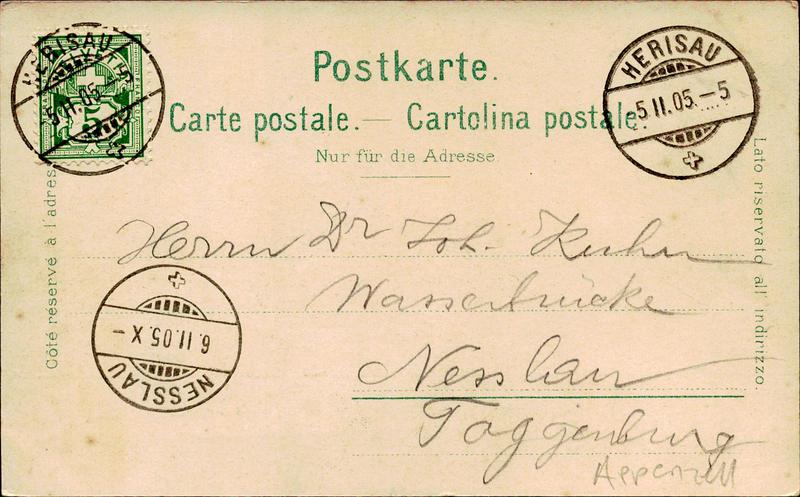 HERISAU
5.II.05.
HELVETIA
5
Postkarte.
Carte postale. — Cartolina postale.
Nur für die Adresse
HERISAU
5 II.05.–5
Côté réservé à l'adres
Lato riservato all indirizzo.
Herrn Dr Joh. Kuhn
Wasserbrücke
Nesslau
Toggenburg
Appenzell
6.II.05.X –
NESSLAU